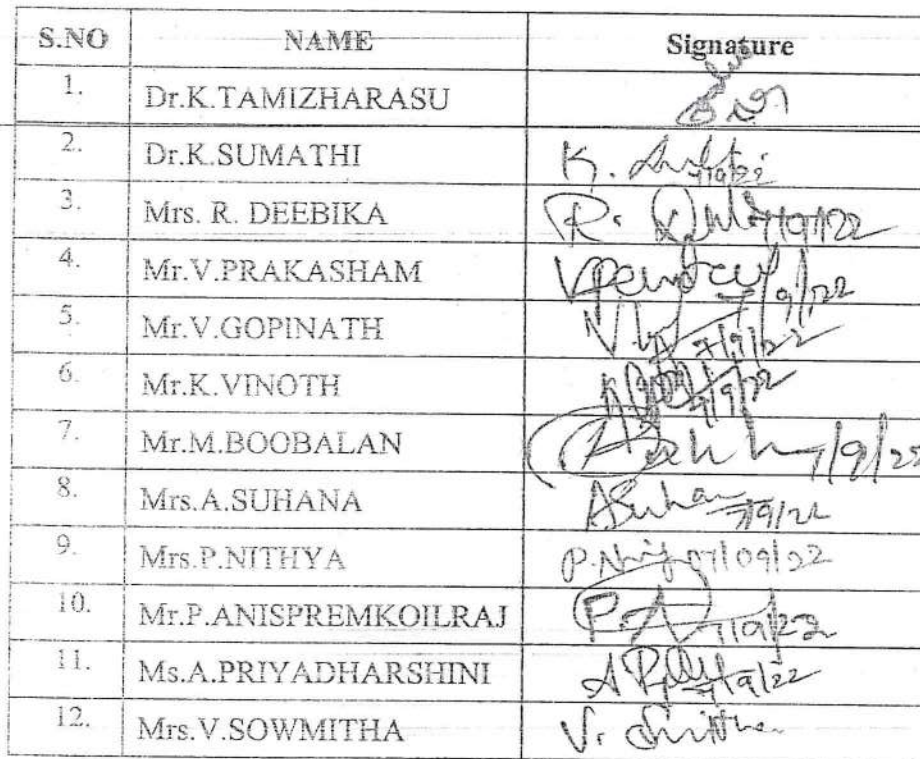 S.NO NAME Signature
1. Dr.K.TAMIZHARASU
2. Dr.K.SUMATHI K. 7/9/22
3. Mrs. R. DEEBIKA R. 7/9/22
4. Mr.V.PRAKASHAM 7/9/22
5. Mr.V.GOPINATH 7/9/22
6. Mr.K.VINOTH 7/9/22
7. Mr.M.BOOBALAN 7/9/22
8. Mrs.A.SUHANA A.Suhana 7/9/22
9. Mrs.P.NITHYA 07/09/22
10. Mr.P.ANISPREMKOILRAJ 7/9/22
11. Ms.A.PRIYADHARSHINI 7/9/22
12. Mrs.V.SOWMITHA V.